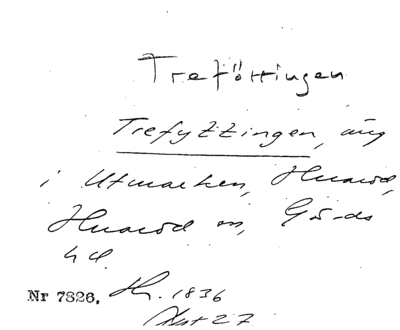 Treföttingen
Trefyttingen, äng
i Utmarken, Huaröd,
Huaröd sn, Gärds
hd.
Nr 7326. Hr. 1836
Akt 27